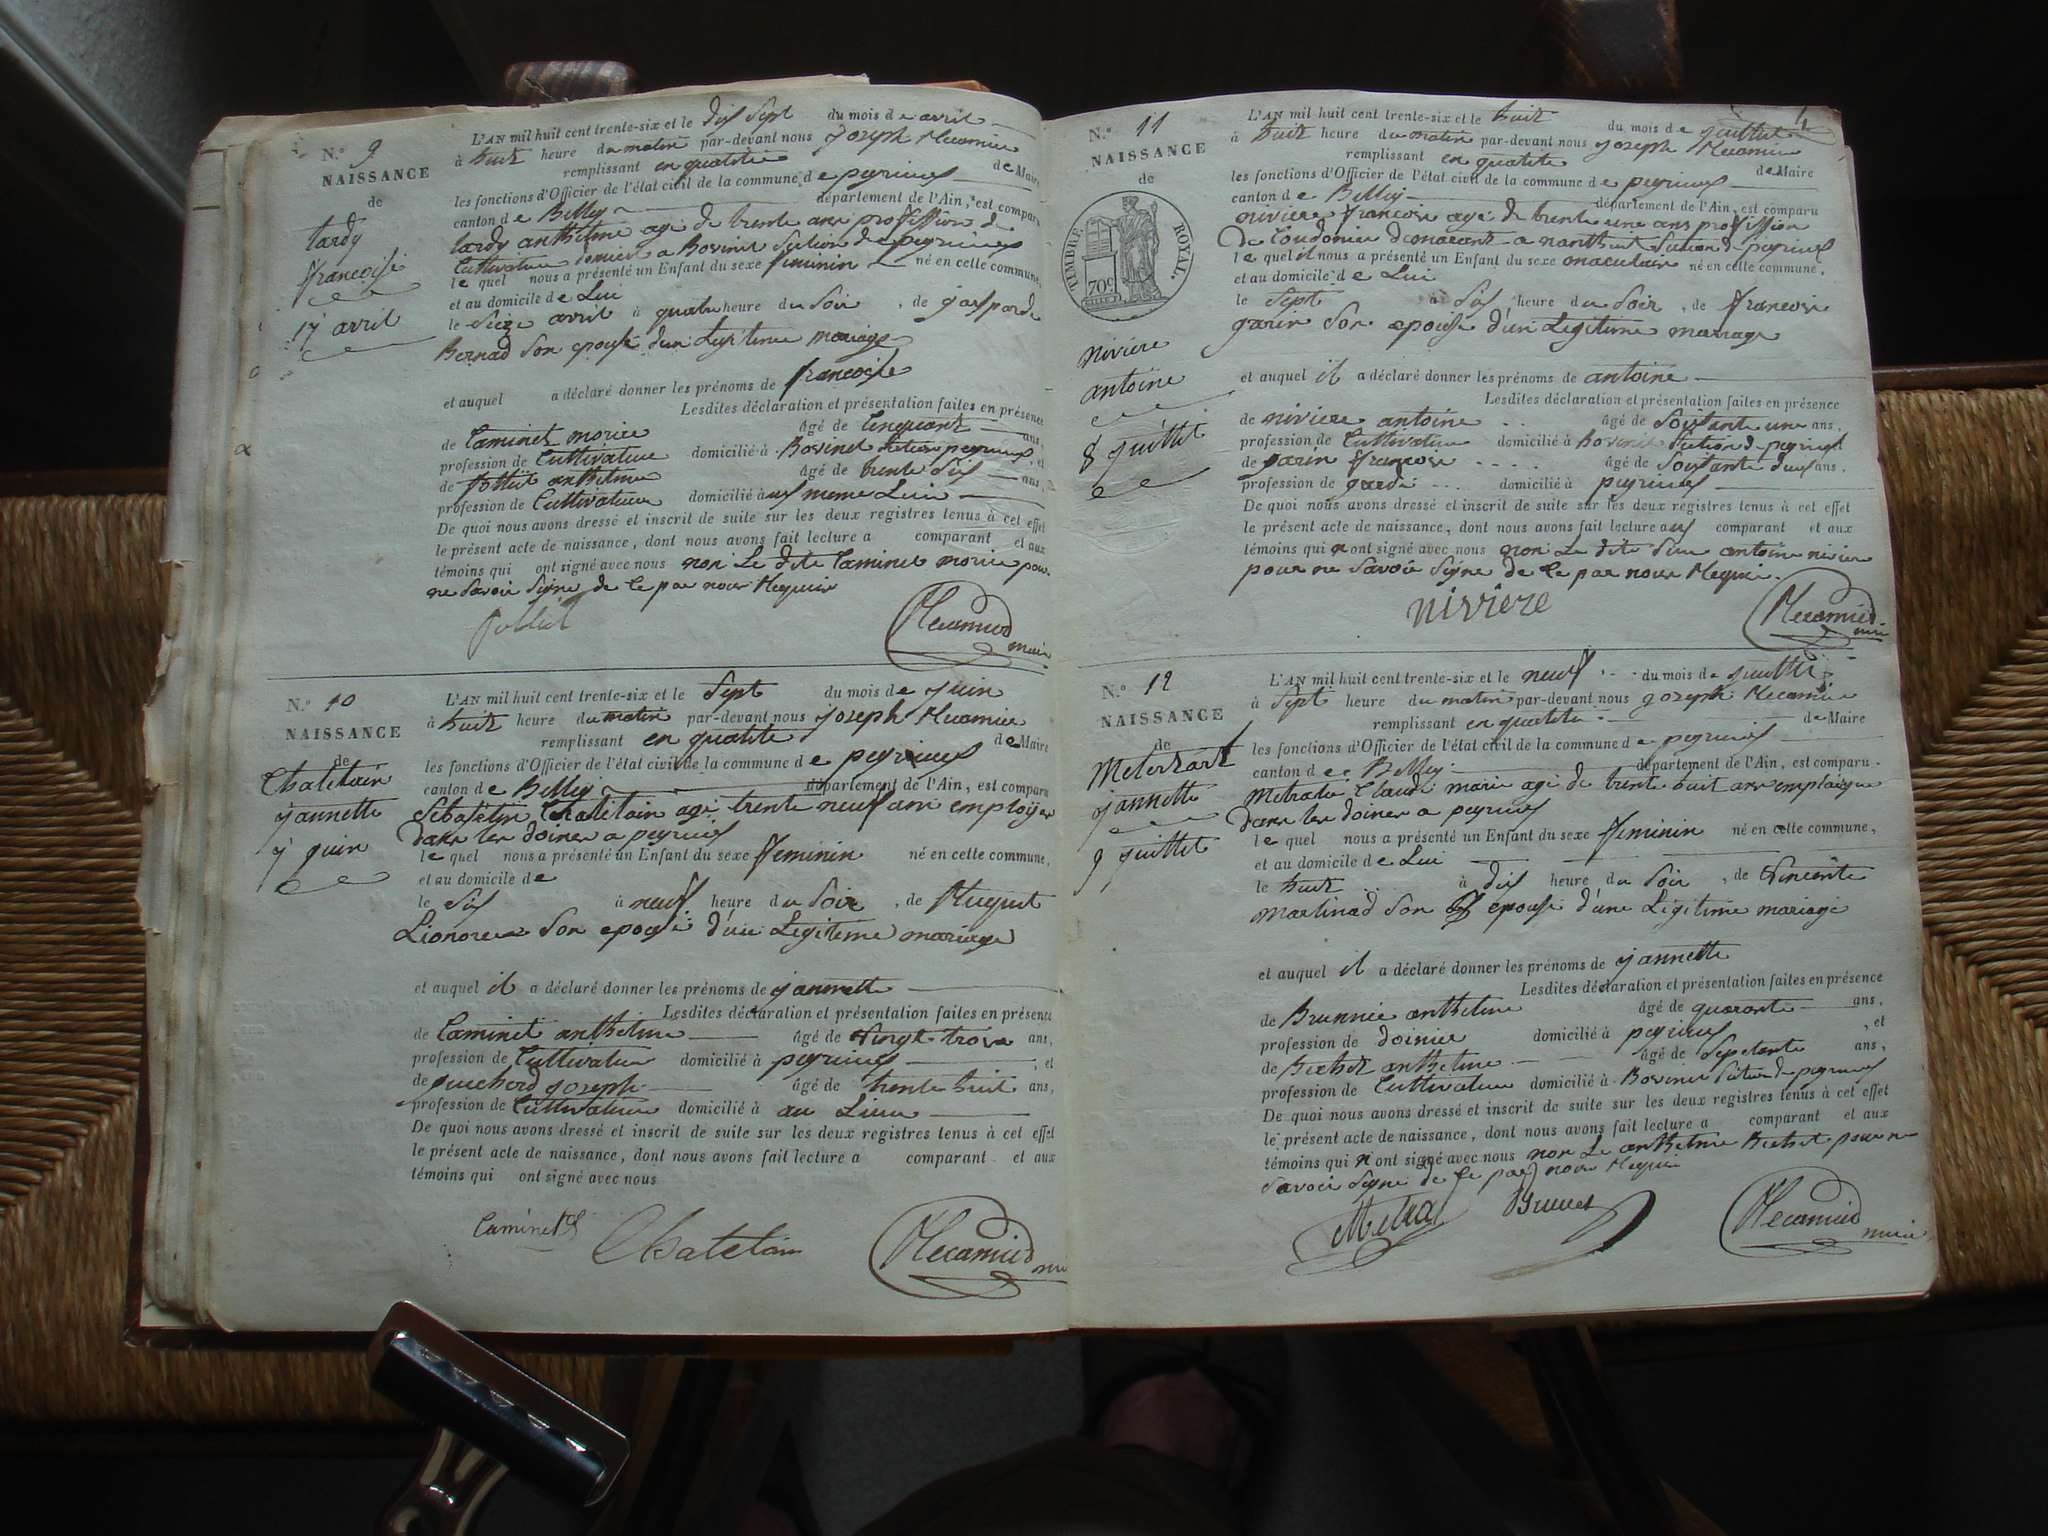 N.º 9
NAISSANCE
de
tardy
francoise
17 avril
L'AN mil huit cent trente-six et le dix Sept du mois de avril
à huit heure du matin par-devant nous joseph Recamier
remplissant en qualité de Maire
les fonctions d'Officier de l'état civil de la commune de peyrieu
canton de Belley département de l'Ain, est comparu
tardy anthelme age de trente ans proffission de
Cultivateur domicil a Bovinel Section de peyrieu
le quel nous a présenté un Enfant du sexe feminin né en cette commune,
et au domicile de Lui
le Seize avril à quatre heure du Soir, de gaspard
Bernad Son epouse d'un Legitime mariage
et auquel a déclaré donner les prénoms de francoise
Lesdites déclaration et présentation faites en présence
de Caminet morice âgé de Cinquant ans,
profession de Cultivateur domicilié à Bovinel Section peyrieu, et
de anthelme âgé de trente Six ans,
profession de Cultivateur domicilié à meme Lieu
De quoi nous avons dressé et inscrit de suite sur les deux registres tenus à cet effet
le présent acte de naissance, dont nous avons fait lecture a comparant et aux
témoins qui ont signé avec nous non Le dite Caminet morice pour
ne Savoir Signe de Ce par nous Requis
Recamier
maire
N.º 10
NAISSANCE
de
Chatelain
jannette
7 juin
L'AN mil huit cent trente-six et le Sept du mois de juin
à huit heure du matin par-devant nous joseph Recamier
remplissant en qualité de Maire
les fonctions d'Officier de l'état civil de la commune de peyrieu
canton de Belley département de l'Ain, est comparu
Sebastien Chatelain age trente neuf ans employer
dans les doines a peyrieu
le quel nous a présenté un Enfant du sexe feminin né en cette commune,
et au domicile de
le Six à neuf heure du Soir, de Huguet
Lionore Son epouse d'un Legiteme mariage
et auquel il a déclaré donner les prénoms de jannette
Lesdites déclaration et présentation faites en présence
de Caminet anthelme âgé de Vingt trois ans,
profession de Cultivateur domicilié à peyrieu, et
de joseph âgé de trente huit ans,
profession de Cultivateur domicilié à au Lieu
De quoi nous avons dressé et inscrit de suite sur les deux registres tenus à cet effet
le présent acte de naissance, dont nous avons fait lecture a comparant et aux
témoins qui ont signé avec nous
Caminet Chatelain Recamier
N.º 11
4
NAISSANCE
de
TIMBRE ROYAL.
70c
niviere
antoine
8 juillet
L'AN mil huit cent trente-six et le huit du mois de juillet
à huit heure du matin par-devant nous joseph Recamier
remplissant en qualité de Maire
les fonctions d'Officier de l'état civil de la commune de peyrieu
canton de Belley département de l'Ain, est comparu
niviere francois age de trente une ans proffission
de Coudonier a Section d peyrieu
le quel il nous a présenté un Enfant du sexe masculain né en cette commune,
et au domicile de Lui
le Sept à Six heure du Soir, de francoise
garin Son epouse d'un Legitime mariage
et auquel il a déclaré donner les prénoms de antoine
Lesdites déclaration et présentation faites en présence
de niviere antoine âgé de Soixante une ans,
profession de Cultivateur domicilié à Bovinel Section d peyrieu
de garin francois âgé de Soixante deux ans,
profession de garde domicilié à peyrieu
De quoi nous avons dressé et inscrit de suite sur les deux registres tenus à cet effet
le présent acte de naissance, dont nous avons fait lecture aux comparant et aux
témoins qui n ont signé avec nous non Le dite antoine nivier
pour ne Savoir Signe de Ce par nous Requis.
niviere Recamier
maire
N.º 12
NAISSANCE
de
jannette
9 juillet
L'AN mil huit cent trente-six et le neuf du mois de juillet
à Sept heure du matin par-devant nous joseph Recamier
remplissant en qualite de Maire
les fonctions d'Officier de l'état civil de la commune de peyrieu
canton de Belley département de l'Ain, est comparu.
Claude marie age de trente huit ans employe
dans les doines a peyrieu
le quel nous a présenté un Enfant du sexe feminin né en cette commune,
et au domicile de Lui
le huit à dix heure du Soir, de Vincente
martinad Son epouse d'une Legitime mariage
et auquel il a déclaré donner les prénoms de jannette
Lesdites déclaration et présentation faites en présence
de anthelme âgé de quarante ans,
profession de doinier domicilié à peyrieu, et
de anthelme âgé de Septante ans,
profession de Cultivateur domicilié à Bovinel Section de peyrieu
De quoi nous avons dressé et inscrit de suite sur les deux registres tenus à cet effet
le présent acte de naissance, dont nous avons fait lecture a comparant et aux
témoins qui n ont signé avec nous non Le anthelme pour ne
Savoir Signe de Ce par nous Requis
Metral Brunet Recamier
maire